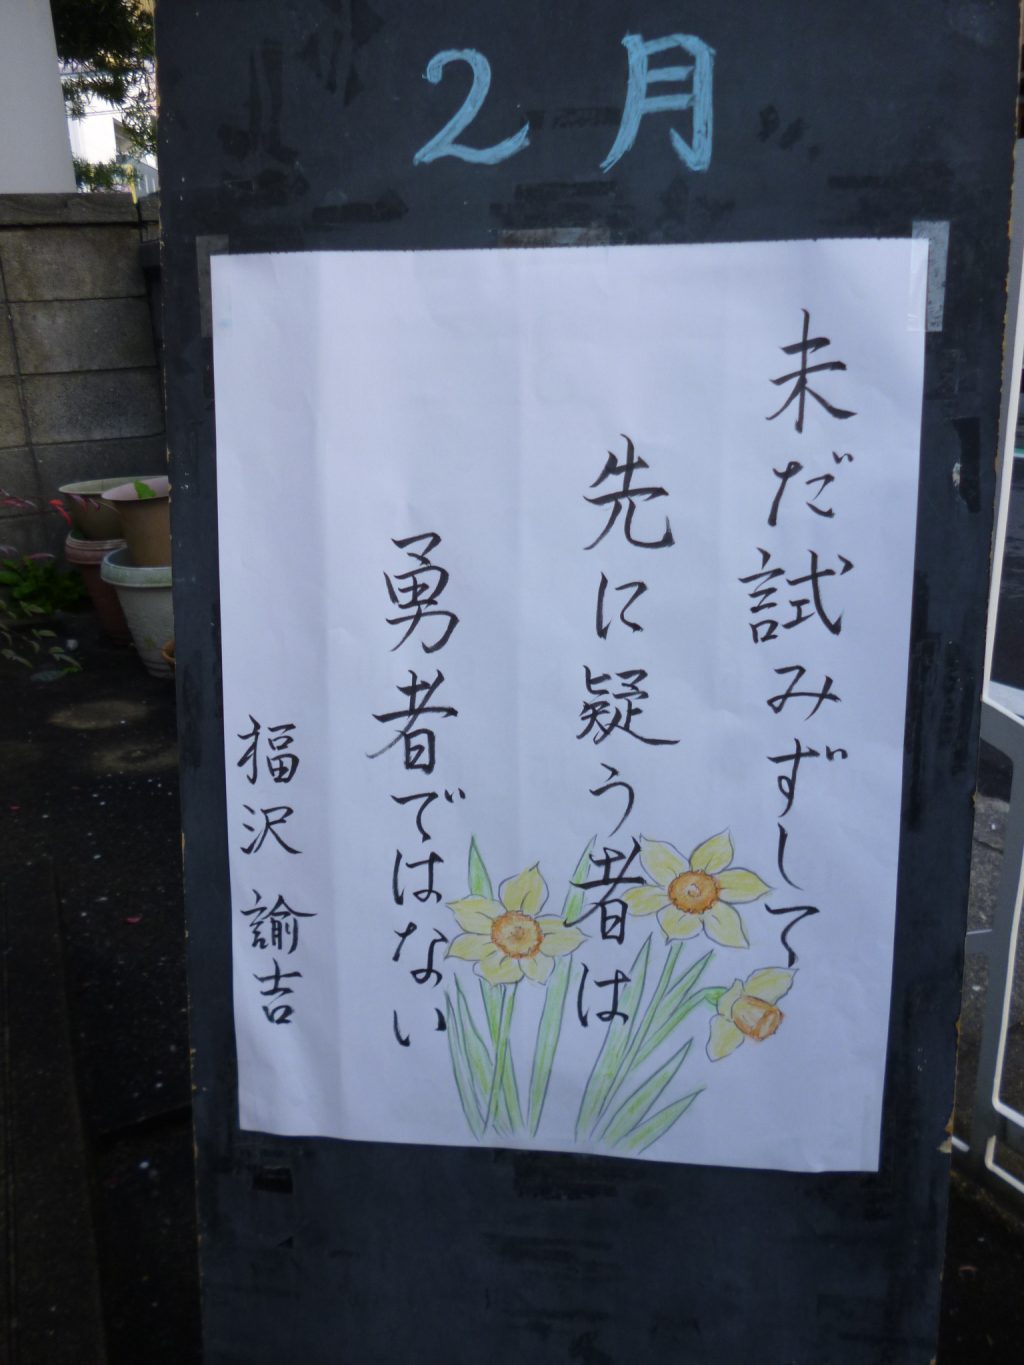 2月
未だ試みずして
先に疑う者は
勇者ではない
福沢 諭吉